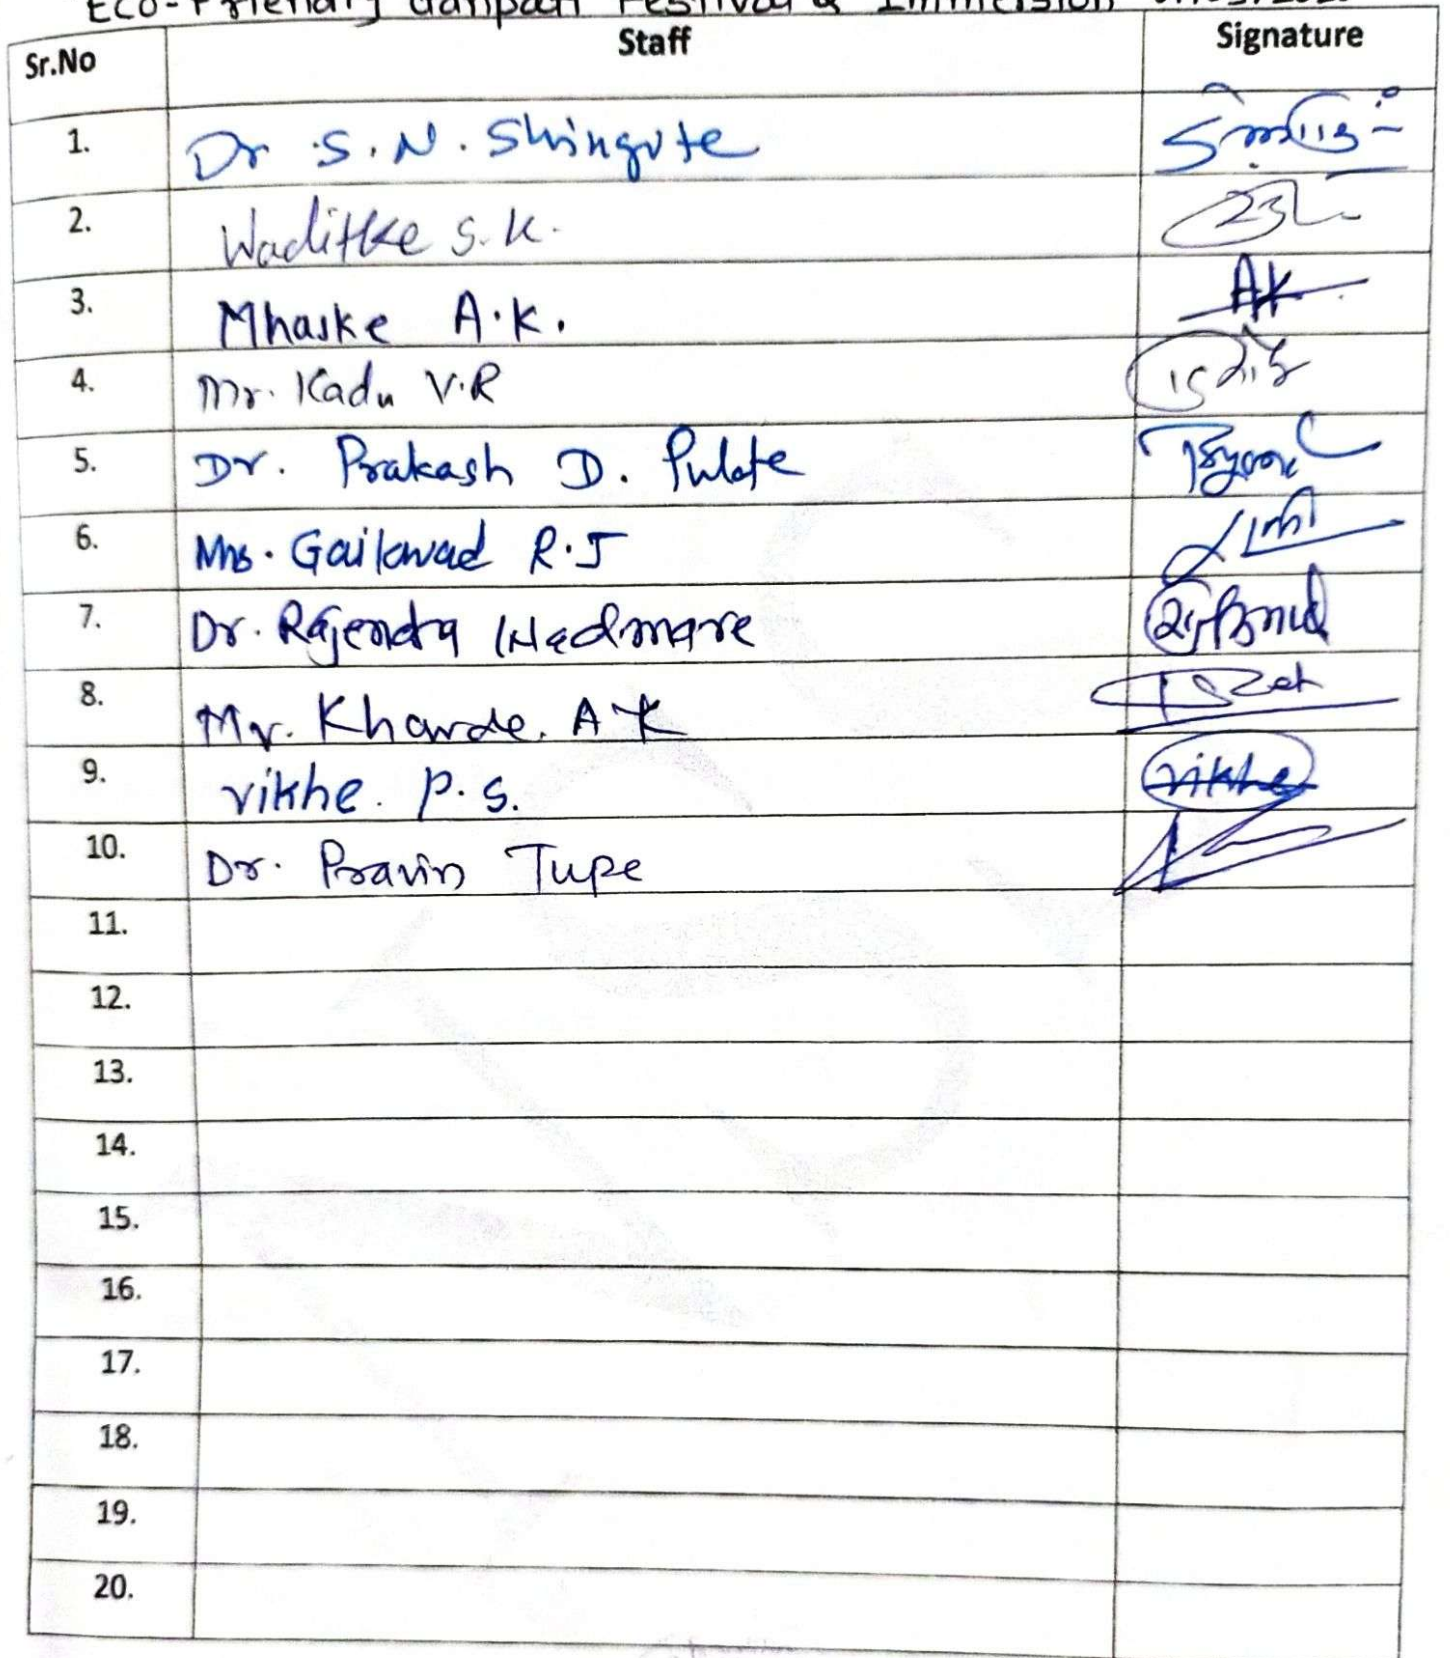 Eco-Friendly Ganpati Festival & Immersion
Sr.No Staff Signature
1. Dr S. N. Shingote
2. Waditke S. K.
3. Mhaske A. K. AK
4. Mr. Kadu V.R
5. Dr. Prakash D. Pulate
6. Mrs. Gaikwad R.J
7. Dr. Rajendra Wadmare
8. Mr. Kharde. A K
9. vikhe. P. S. vikhe
10. Dr. Pravin Tupe
11.
12.
13.
14.
15.
16.
17.
18.
19.
20.